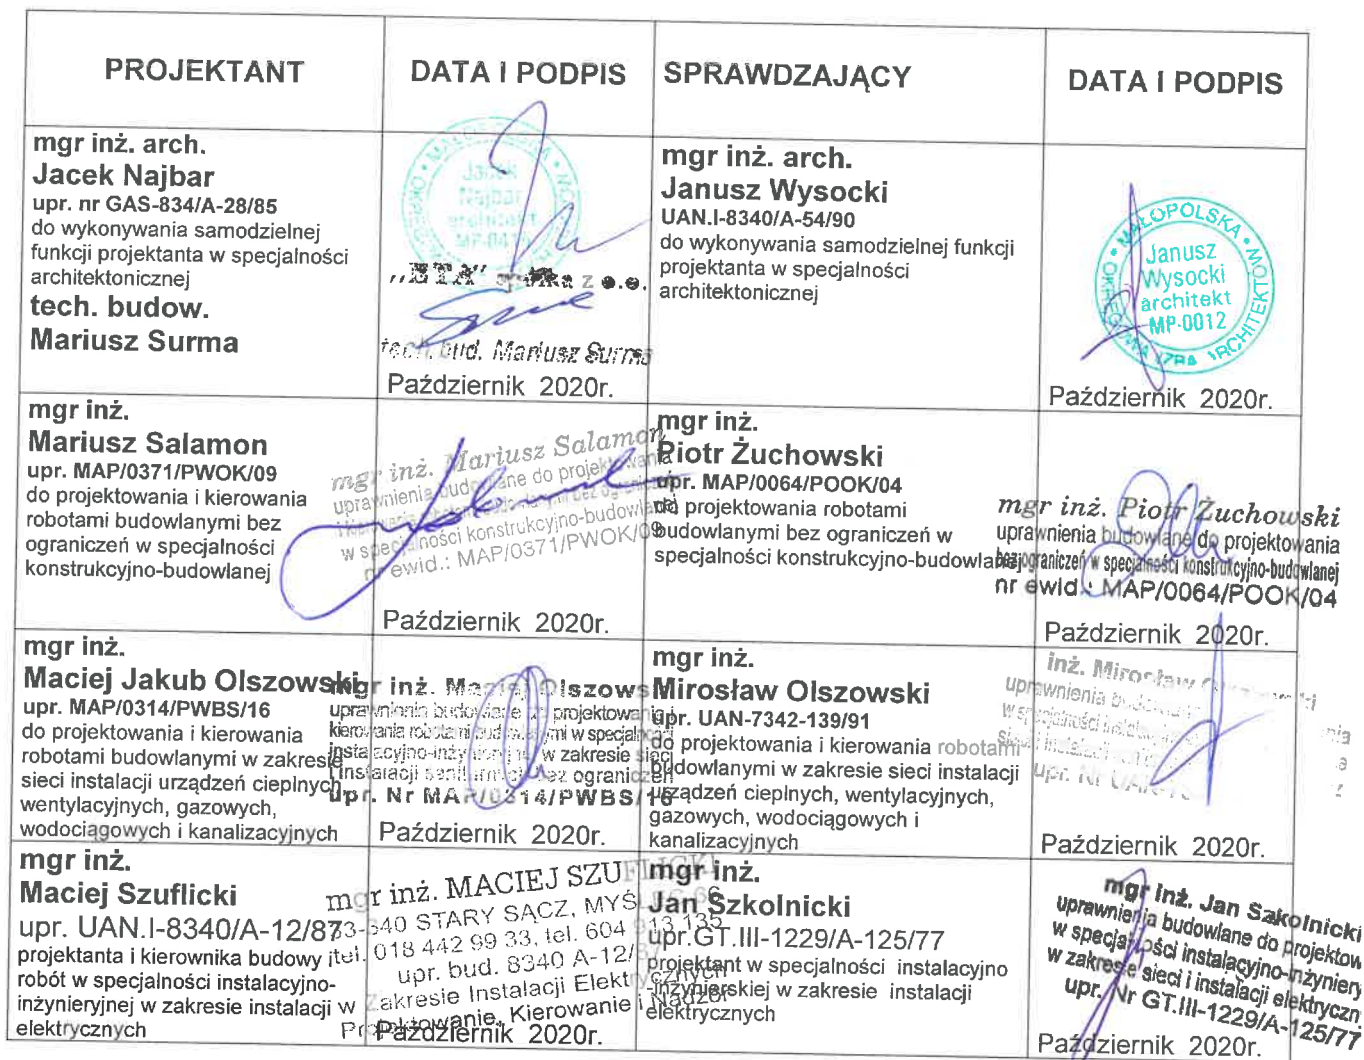 PROJEKTANT
DATA I PODPIS
SPRAWDZAJĄCY
DATA I PODPIS
mgr inż. arch.
Jacek Najbar
upr. nr GAS-834/A-28/85
do wykonywania samodzielnej
funkcji projektanta w specjalności
architektonicznej
tech. budow.
Mariusz Surma
Jacek
Najbar
architekt
„ETA" spółka z o.o.
tech. bud. Mariusz Surma
Październik 2020r.
mgr inż. arch.
Janusz Wysocki
UAN.I-8340/A-54/90
do wykonywania samodzielnej funkcji
projektanta w specjalności
architektonicznej
MAŁOPOLSKA
Janusz
Wysocki
architekt
MP-0012
Październik 2020r.
mgr inż.
Mariusz Salamon
upr. MAP/0371/PWOK/09
do projektowania i kierowania
robotami budowlanymi bez
ograniczeń w specjalności
konstrukcyjno-budowlanej
mgr inż. Mariusz Salamon
uprawnienia budowlane do projektowania
w specjalności konstrukcyjno-budowlanej
nr ewid.: MAP/0371/PWOK/09
Październik 2020r.
mgr inż.
Piotr Żuchowski
upr. MAP/0064/POOK/04
do projektowania robotami
budowlanymi bez ograniczeń w
specjalności konstrukcyjno-budowlanej
mgr inż. Piotr Żuchowski
uprawnienia budowlane do projektowania
bez ograniczeń w specjalności konstrukcyjno-budowlanej
nr ewid.: MAP/0064/POOK/04
Październik 2020r.
mgr inż.
Maciej Jakub Olszowski
upr. MAP/0314/PWBS/16
do projektowania i kierowania
robotami budowlanymi w zakresie
sieci instalacji urządzeń cieplnych,
wentylacyjnych, gazowych,
wodociągowych i kanalizacyjnych
mgr inż. Maciej Olszows
uprawnienia budowlane do projektowania i
kierowania robotami budowlanymi w specjalności
instalacyjno-inżynieryjnej w zakresie sieci
i instalacji sanitarnych bez ograniczeń
upr. Nr MAP/0314/PWBS/16
Październik 2020r.
mgr inż.
Mirosław Olszowski
upr. UAN-7342-139/91
do projektowania i kierowania robotami
budowlanymi w zakresie sieci instalacji
urządzeń cieplnych, wentylacyjnych,
gazowych, wodociągowych i
kanalizacyjnych
inż. Mirosław
uprawnienia budowlane
w specjalności
upr. Nr
Październik 2020r.
mgr inż.
Maciej Szuflicki
upr. UAN.I-8340/A-12/87
projektanta i kierownika budowy i
robót w specjalności instalacyjno-
inżynieryjnej w zakresie instalacji
elektrycznych
mgr inż. MACIEJ SZUFLICKI
33-340 STARY SĄCZ,
tel. 018 442 99 33, tel. 604 913 135
upr. bud. 8340 A-12/
w Zakresie Instalacji Elektrycznych
Projektowanie, Kierowanie i Nadzór
Październik 2020r.
mgr inż.
Jan Szkolnicki
upr.GT.III-1229/A-125/77
projektant w specjalności instalacyjno
-inżynierskiej w zakresie instalacji
elektrycznych
mgr inż. Jan Szkolnicki
uprawnienia budowlane do projektow
w specjalności instalacyjno-inżyniery
w zakresie sieci i instalacji elektryczn
upr. Nr GT.III-1229/A-125/77
Październik 2020r.